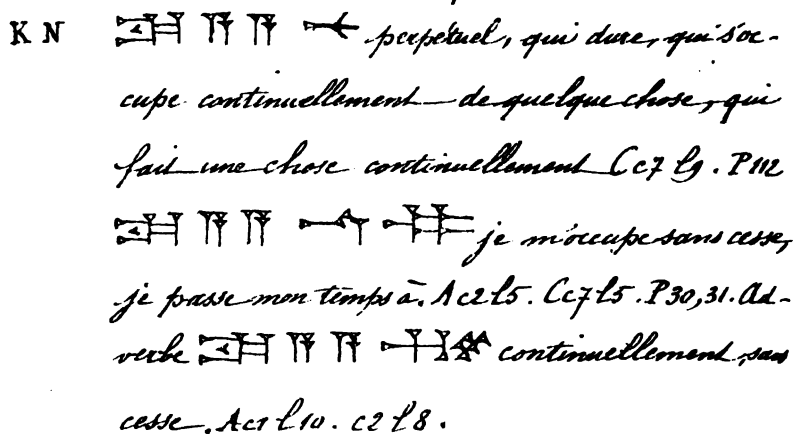 K N 𒀀 𒀀 perpétuel, qui dure, qui s'oc-
cupe continuellement de quelque chose, qui
fait une chose continuellement Cc7 l9. P112
𒀀 𒀀 je m'occupe sans cesse,
je passe mon temps à. Ac2 l5. Cc7 l5. P30,31. Ad-
verbe 𒀀 𒀀 continuellement, sans
cesse. Ac1 l10. c2 l8.